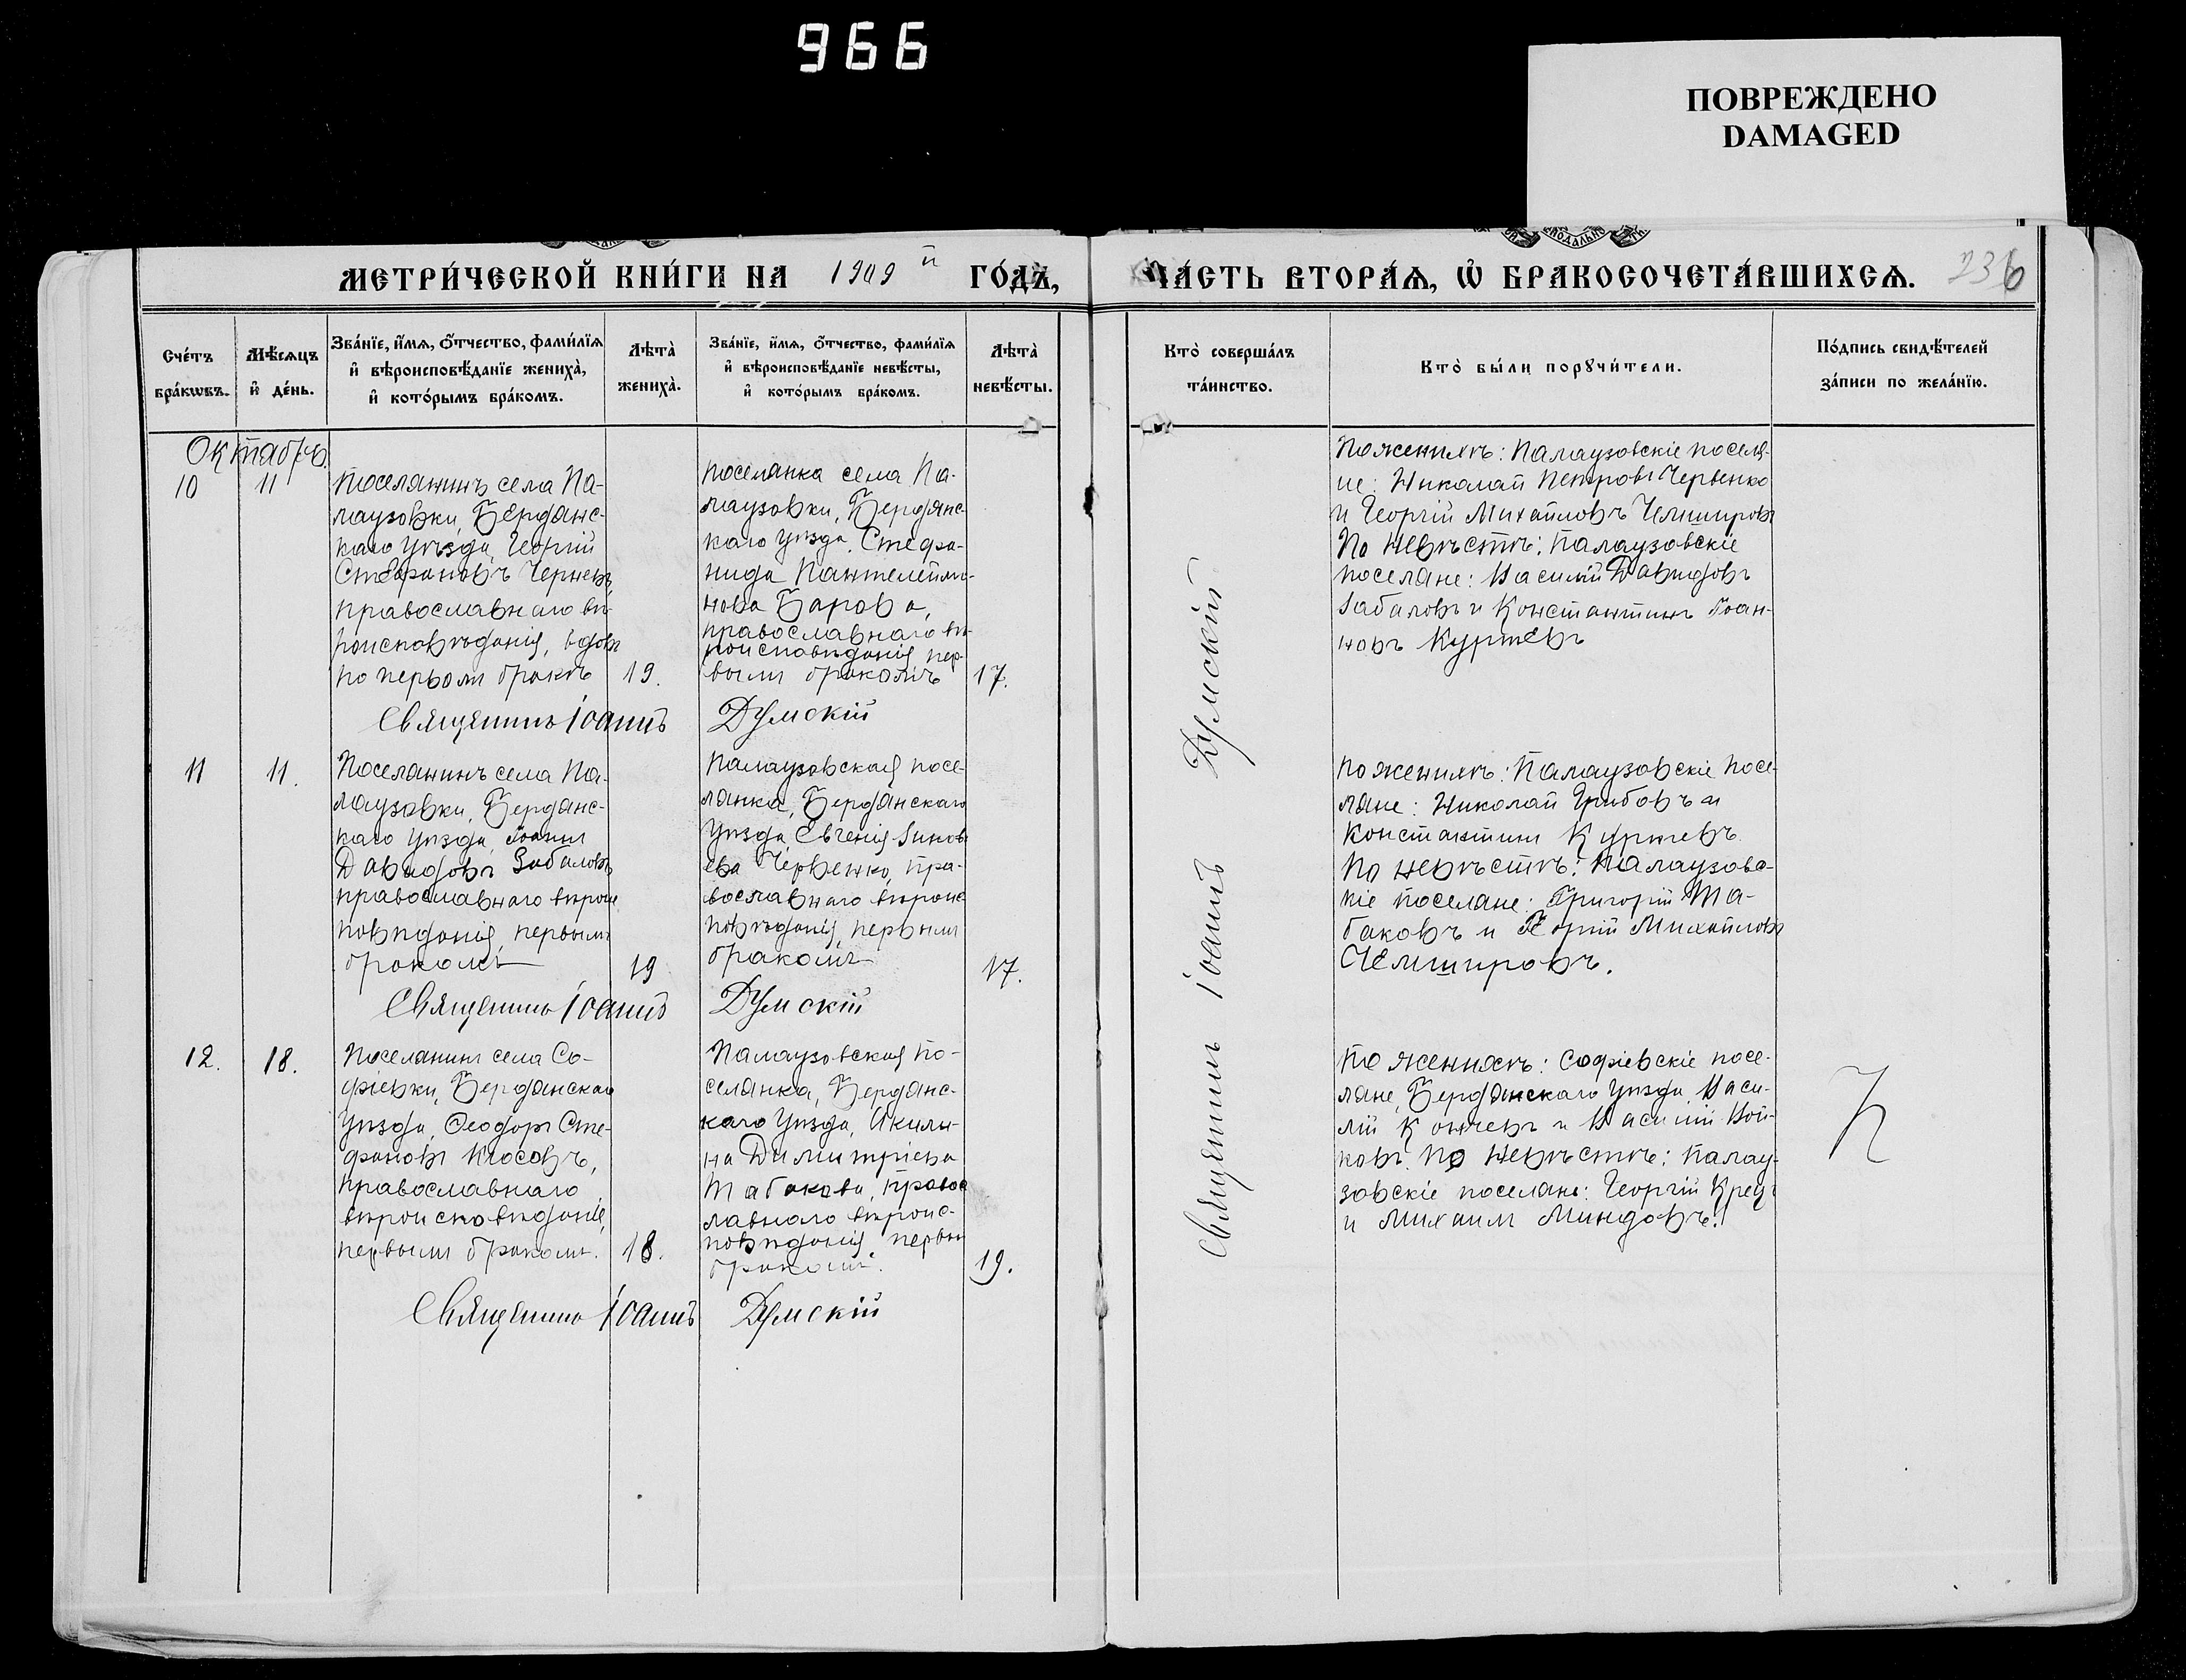 966
ПОВРЕЖДЕНО
DAMAGED
МЕТРИ́ЧЕСКОЙ КНИ́ГИ НА 1909 й ГО́ДЪ,
ЧА́СТЬ ВТОРА́Ѧ, Ѡ҆ БРАКОСОЧЕТА́ВШИХСѦ.
236
Сче́тъ
бра́кѡвъ.
Мѣ́сѧцъ
и҆ де́нь.
Зва́нїе, и҆́мѧ, ѻ҆́тчество, фами́лїѧ
и҆ вѣроисповѣ́данїе жениха̀,
и҆ кото́рымъ бра́комъ.
Лѣта̀
жениха̀.
Зва́нїе, и҆́мѧ, ѻ҆́тчество, фами́лїѧ
и҆ вѣроисповѣ́данїе невѣ́сты,
и҆ кото́рымъ бра́комъ.
Лѣта̀
невѣ́сты.
Кто̀ соверша́лъ
та́инство.
Кто̀ бы́ли порꙋчи́тели.
По́дпись свидѣ́телей
за́писи по жела́нїю.
Октябрь
10
11
Поселянинъ села Па-
лаузовки, Бердянс-
каго уѣзда, Георгій
Стефановъ Черневъ,
православнаго вѣ-
роисповѣданія, вдовъ
по первомъ бракѣ
19.
поселянка села Па-
лаузовки, Бердянс-
каго уѣзда, Стефа-
нида Пантелеймо-
нова Барова,
православнаго вѣ-
роисповѣданія пер-
вымъ бракомъ
17.
Священникъ Іоаннъ Думскій
По женихѣ: Палаузовскіе поселя-
не: Николай Петровъ Червенко
и Георгій Михайловъ Чемшировъ
По невѣстѣ: Палаузовскіе
поселяне: Василій Давидовъ
Забаловъ и Константинъ Іоан-
новъ Куртевъ
11
11.
Поселянинъ села Па-
лаузовки, Бердянс-
каго уѣзда, Іоаннъ
Давидовъ Забаловъ
православнаго вѣроис
повѣданія, первымъ
бракомъ
19
Палаузовская посе-
лянка, Бердянскаго
уѣзда, Евгенія Зиновь
ева Червенко, пра-
вославнаго вѣроис-
повѣданія, первымъ
бракомъ
17.
Священникъ Іоаннъ Думскій
По женихѣ: Палаузовскіе посе-
ляне: Николай Грибовъ и
Константинъ Куртевъ.
По невѣстѣ: Палаузовс-
кіе поселяне: Григорій Та-
баковъ и Георгій Михайловъ
Чемшировъ.
12.
18.
Поселянинъ села Со-
фіевки, Бердянскаго
уѣзда, Ѳеодоръ Сте-
фановъ Кюсовъ,
православнаго
вѣроисповѣданія,
первымъ бракомъ.
18.
Палаузовская по-
селянка, Бердянс-
каго уѣзда, Акили-
на Димитріева
Табакова, правос
лавнаго вѣроис-
повѣданія, первы
бракомъ.
19.
Священникъ Іоаннъ Думскій
По женихѣ: Софіевскіе посе-
ляне, Бердянскаго уѣзда, Васи-
лій Конгевъ и Василій Вой-
ковъ. По невѣстѣ: Палау-
зовскіе поселяне: Георгій Крецъ
и Михаилъ Миндовъ.
Священникъ Іоаннъ Думскій